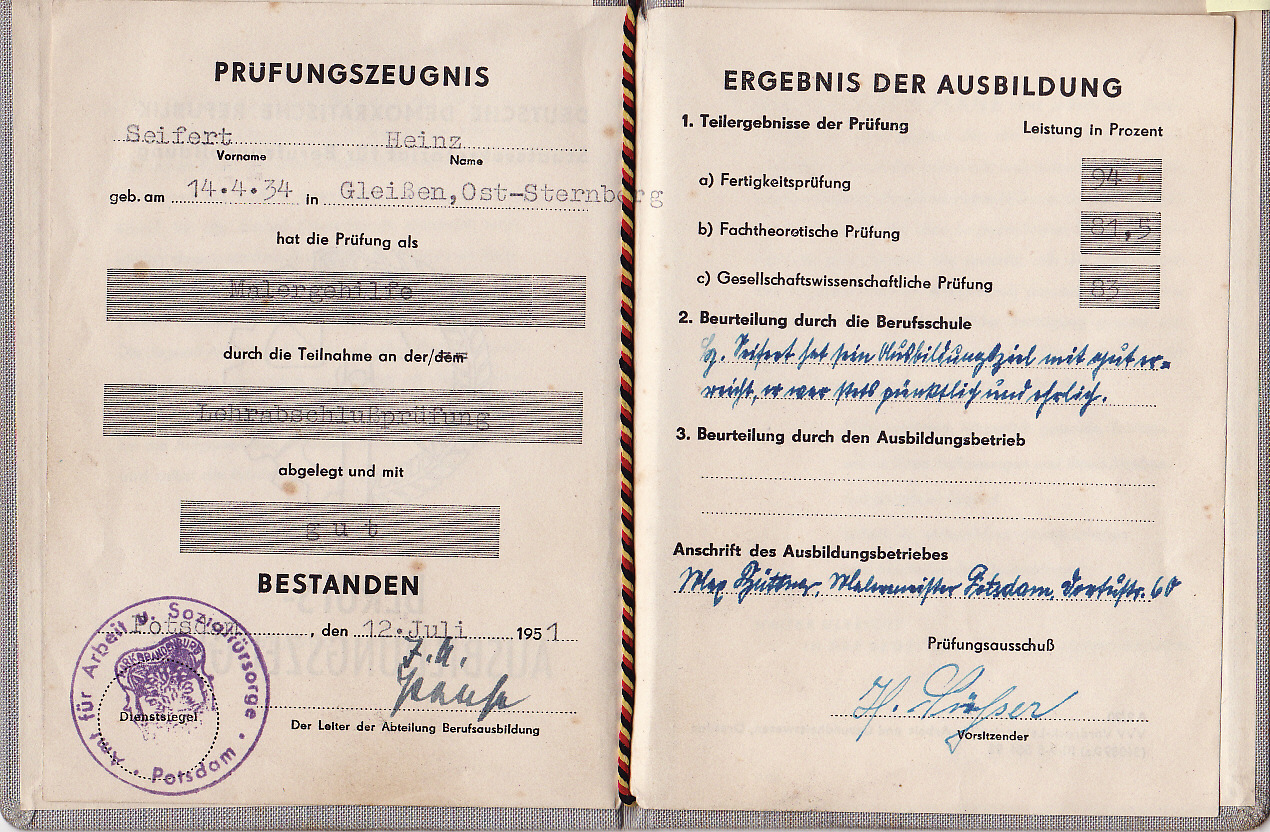 PRÜFUNGSZEUGNIS
Seifert Heinz
Vorname Name
geb. am 14.4.34 in Gleißen, Ost-Sternberg
hat die Prüfung als
Malergehilfe
durch die Teilnahme an der/dem
Lehrabschlußprüfung
abgelegt und mit
gut
BESTANDEN
Potsdam, den 12. Juli 1951
J.A.
Der Leiter der Abteilung Berufsausbildung
Amt für Arbeit u. Sozialfürsorge · Potsdam ·
MARK BRANDENBURG
Dienstsiegel
ERGEBNIS DER AUSBILDUNG
1. Teilergebnisse der Prüfung Leistung in Prozent
a) Fertigkeitsprüfung 94
b) Fachtheoretische Prüfung 81,5
c) Gesellschaftswissenschaftliche Prüfung 83
2. Beurteilung durch die Berufsschule
Seifert hat sein Ausbildungsziel mit gut er-
reicht, er war stets pünktlich und ehrlich.
3. Beurteilung durch den Ausbildungsbetrieb
Anschrift des Ausbildungsbetriebes
Max Büttner, Malermeister Potsdam, 60
Prüfungsausschuß
H.
Vorsitzender